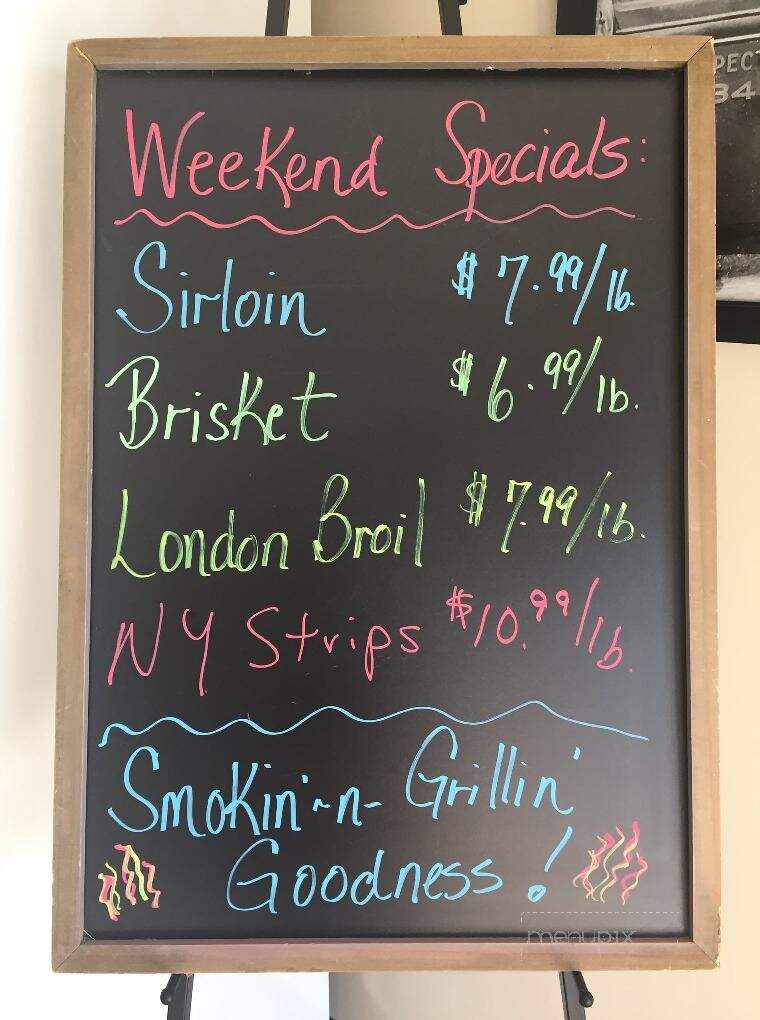 Weekend Specials:
Sirloin $7.99/lb.
Brisket $6.99/lb.
London Broil $7.99/lb.
NY Strips $10.99/lb.
Smokin'-n- Grillin'
Goodness!
menupix
PECT
34